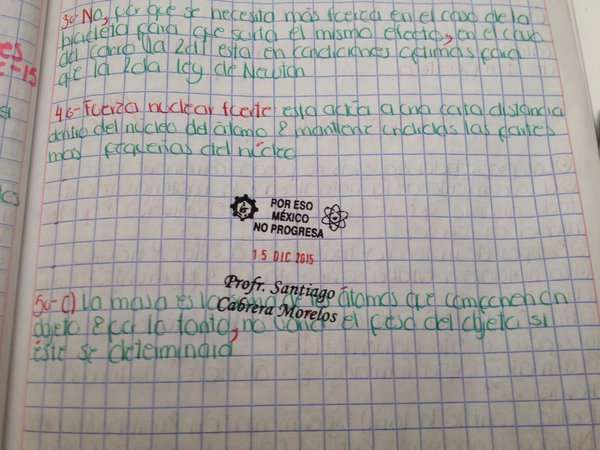 3o- No, por que se necesita más fuerza en el caso de la
bicicleta para que surta el mismo efecto, en el caso
del carro la 2da esta en condiciones optimas para
que la 2da ley de Newton
4o- Fuerza nuclear fuerte esta actúa a una corta distancia
dentro del núcleo del átomo & mantiene unidas las partes
mas pequeñas del núcleo
POR ESO
MÉXICO
NO PROGRESA
15 DIC 2015
Profr. Santiago
Cabrera Morelos
5o- c) La masa es la de átomos que componen un
objeto & por lo tanto, no el peso del objeto si
éste se determinara